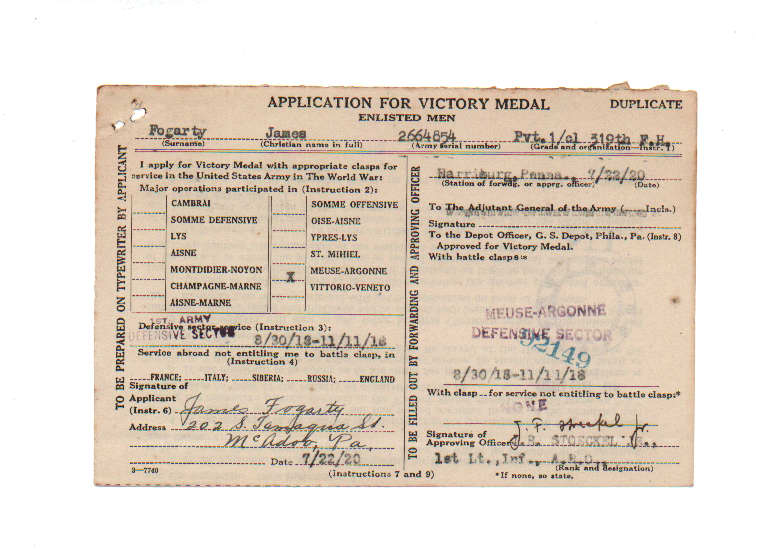 APPLICATION FOR VICTORY MEDAL DUPLICATE
ENLISTED MEN
Fogarty James 2664854 Pvt.1/cl 319th F.H.
(Surname) (Christian name in full) (Army serial number) (Grade and organization—Instr. 1)
TO BE PREPARED ON TYPEWRITER BY APPLICANT
I apply for Victory Medal with appropriate clasps for
service in the United States Army in The World War:
Major operations participated in (Instruction 2):
CAMBRAI
SOMME DEFENSIVE
LYS
AISNE
MONTDIDIER-NOYON
CHAMPAGNE-MARNE
AISNE-MARNE
SOMME OFFENSIVE
OISE-AISNE
YPRES-LYS
ST. MIHIEL
X MEUSE-ARGONNE
VITTORIO-VENETO
1ST. ARMY
Defensive sector service (Instruction 3):
DEFENSIVE SECTOR 8/30/18-11/11/18
Service abroad not entitling me to battle clasp, in
(Instruction 4)
FRANCE; ITALY; SIBERIA; RUSSIA; ENGLAND
Signature of
Applicant
(Instr. 6) James Fogarty
Address 202 S. Tamaqua St.
McAdoo, Pa.
Date 7/22/20
3—7740 (Instructions 7 and 9)
TO BE FILLED OUT BY FORWARDING AND APPROVING OFFICER
Harrisburg,Penna., 7/22/20
(Station of forwdg. or apprg. officer) (Date)
To The Adjutant General of the Army (Incls.)
Signature
To the Depot Officer, G. S. Depot, Phila., Pa. (Instr. 8)
Approved for Victory Medal.
With battle clasps:*
MEUSE-ARGONNE
DEFENSIVE SECTOR
92149
8/30/18-11/11/18
With clasp for service not entitling to battle clasp:*
NONE
Signature of
Approving Officer J.B. STOECKEL JR.,
1st Lt.,Inf., A.R.O.,
(Rank and designation)
*If none, so state.